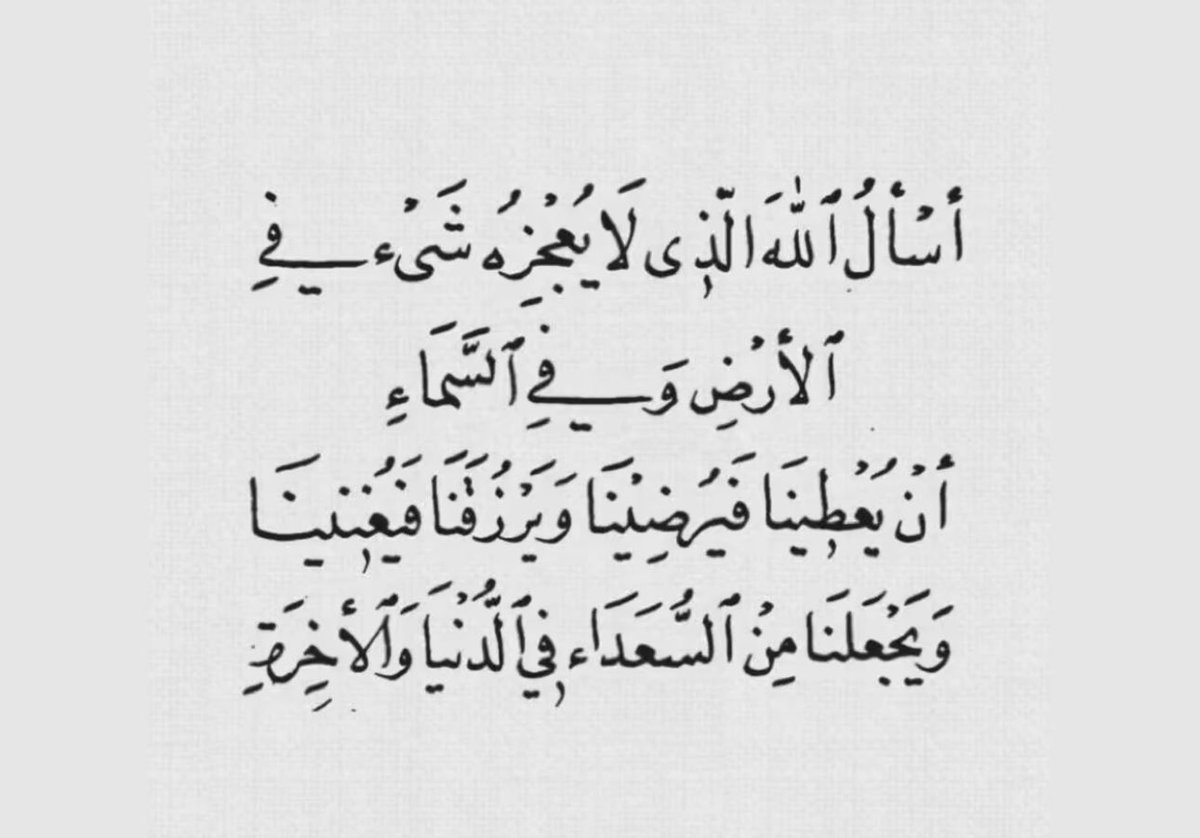 أَسْأَلُ ٱللّٰهَ الَّذِى لَا يُعْجِزُه شَىْء فِي
ٱلْأَرْضِ وَفِي ٱلسَّمَاءِ
أَنْ يُعْطِينَا فَيُرْضِيْنَا وَيَرْزُقَنَا فَيُغْنِينَا
وَيَجْعَلَنَا مِنْ ٱلسُّعَدَاء فِي ٱلدُّنْيَا وَٱلْأَخِرَةِ